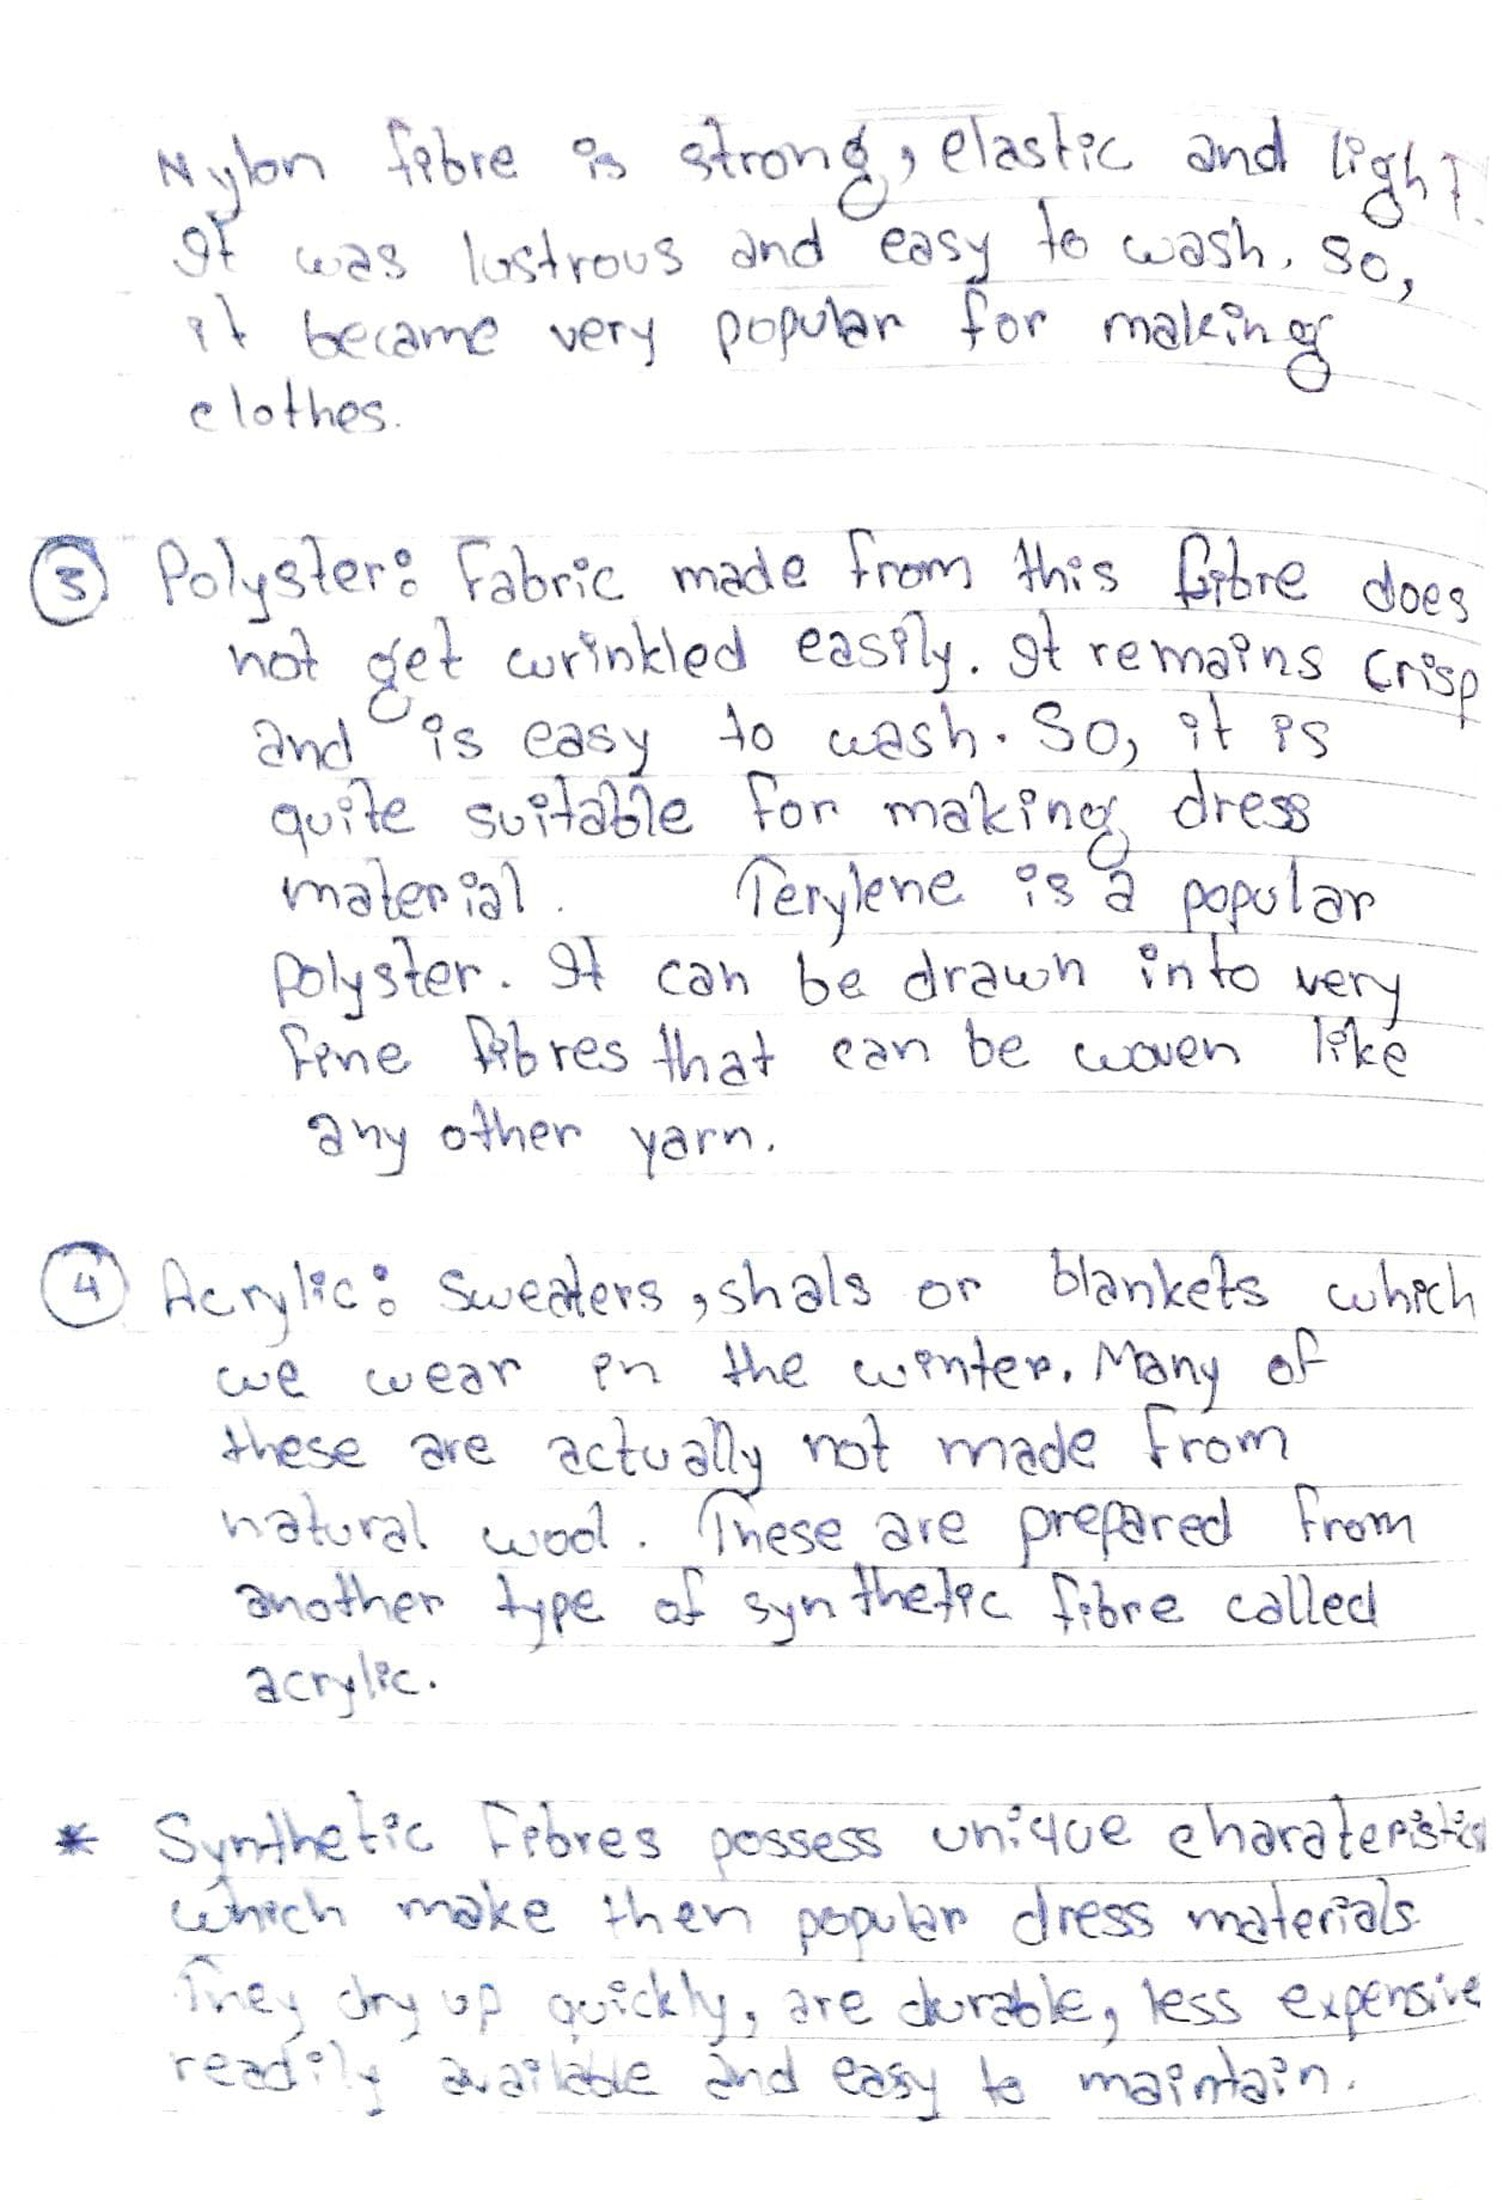 Nylon fibre is strong, elastic and light.
It was lustrous and easy to wash. So,
it became very popular for making
clothes.
③ Polyster: Fabric made from this fibre does
not get wrinkled easily. It remains crisp
and is easy to wash. So, it is
quite suitable for making dress
material. Terylene is a popular
polyster. It can be drawn into very
fine fibres that can be woven like
any other yarn.
④ Acrylic: Sweaters, shals or blankets which
we wear in the winter. Many of
these are actually not made from
natural wool. These are prepared from
another type of synthetic fibre called
acrylic.
* Synthetic Fibres possess unique charateristics
which make then popular dress materials.
They dry up quickly, are durable, less expensive
readily available and easy to maintain.